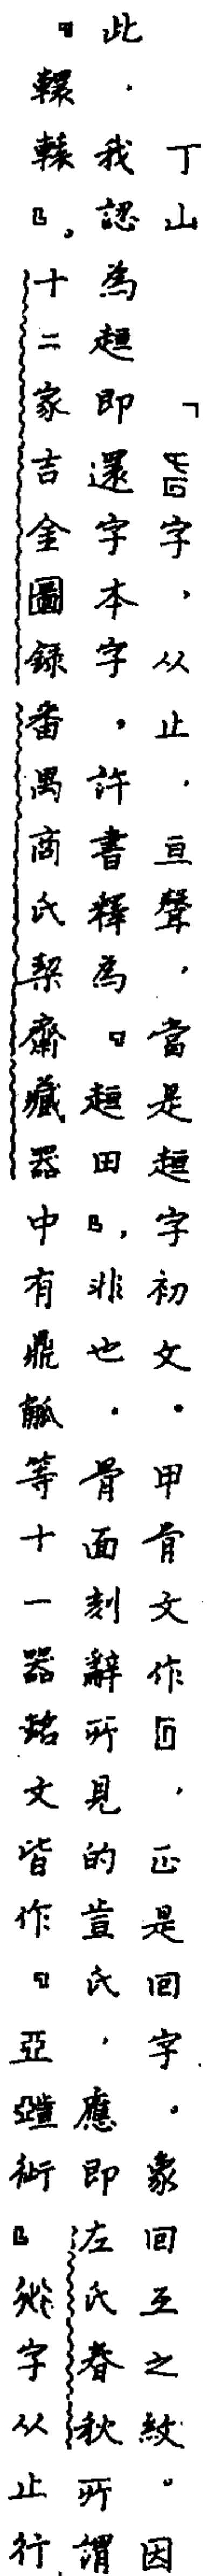 丁山　「𣥺字，从止，亘聲，當是趄字初文。甲骨文作𠄢，正是回字。象回互之紋。因
此，我認為趄即還字本字。許書釋為『趄田』，非也．骨面刻辭所見的豈氏，應即左氏春秋所謂
『轘轅』。十二家吉金圖錄番禺商氏契齋藏器中有鼎觚等十一器銘文皆作『亞 𧗞』 字从止行